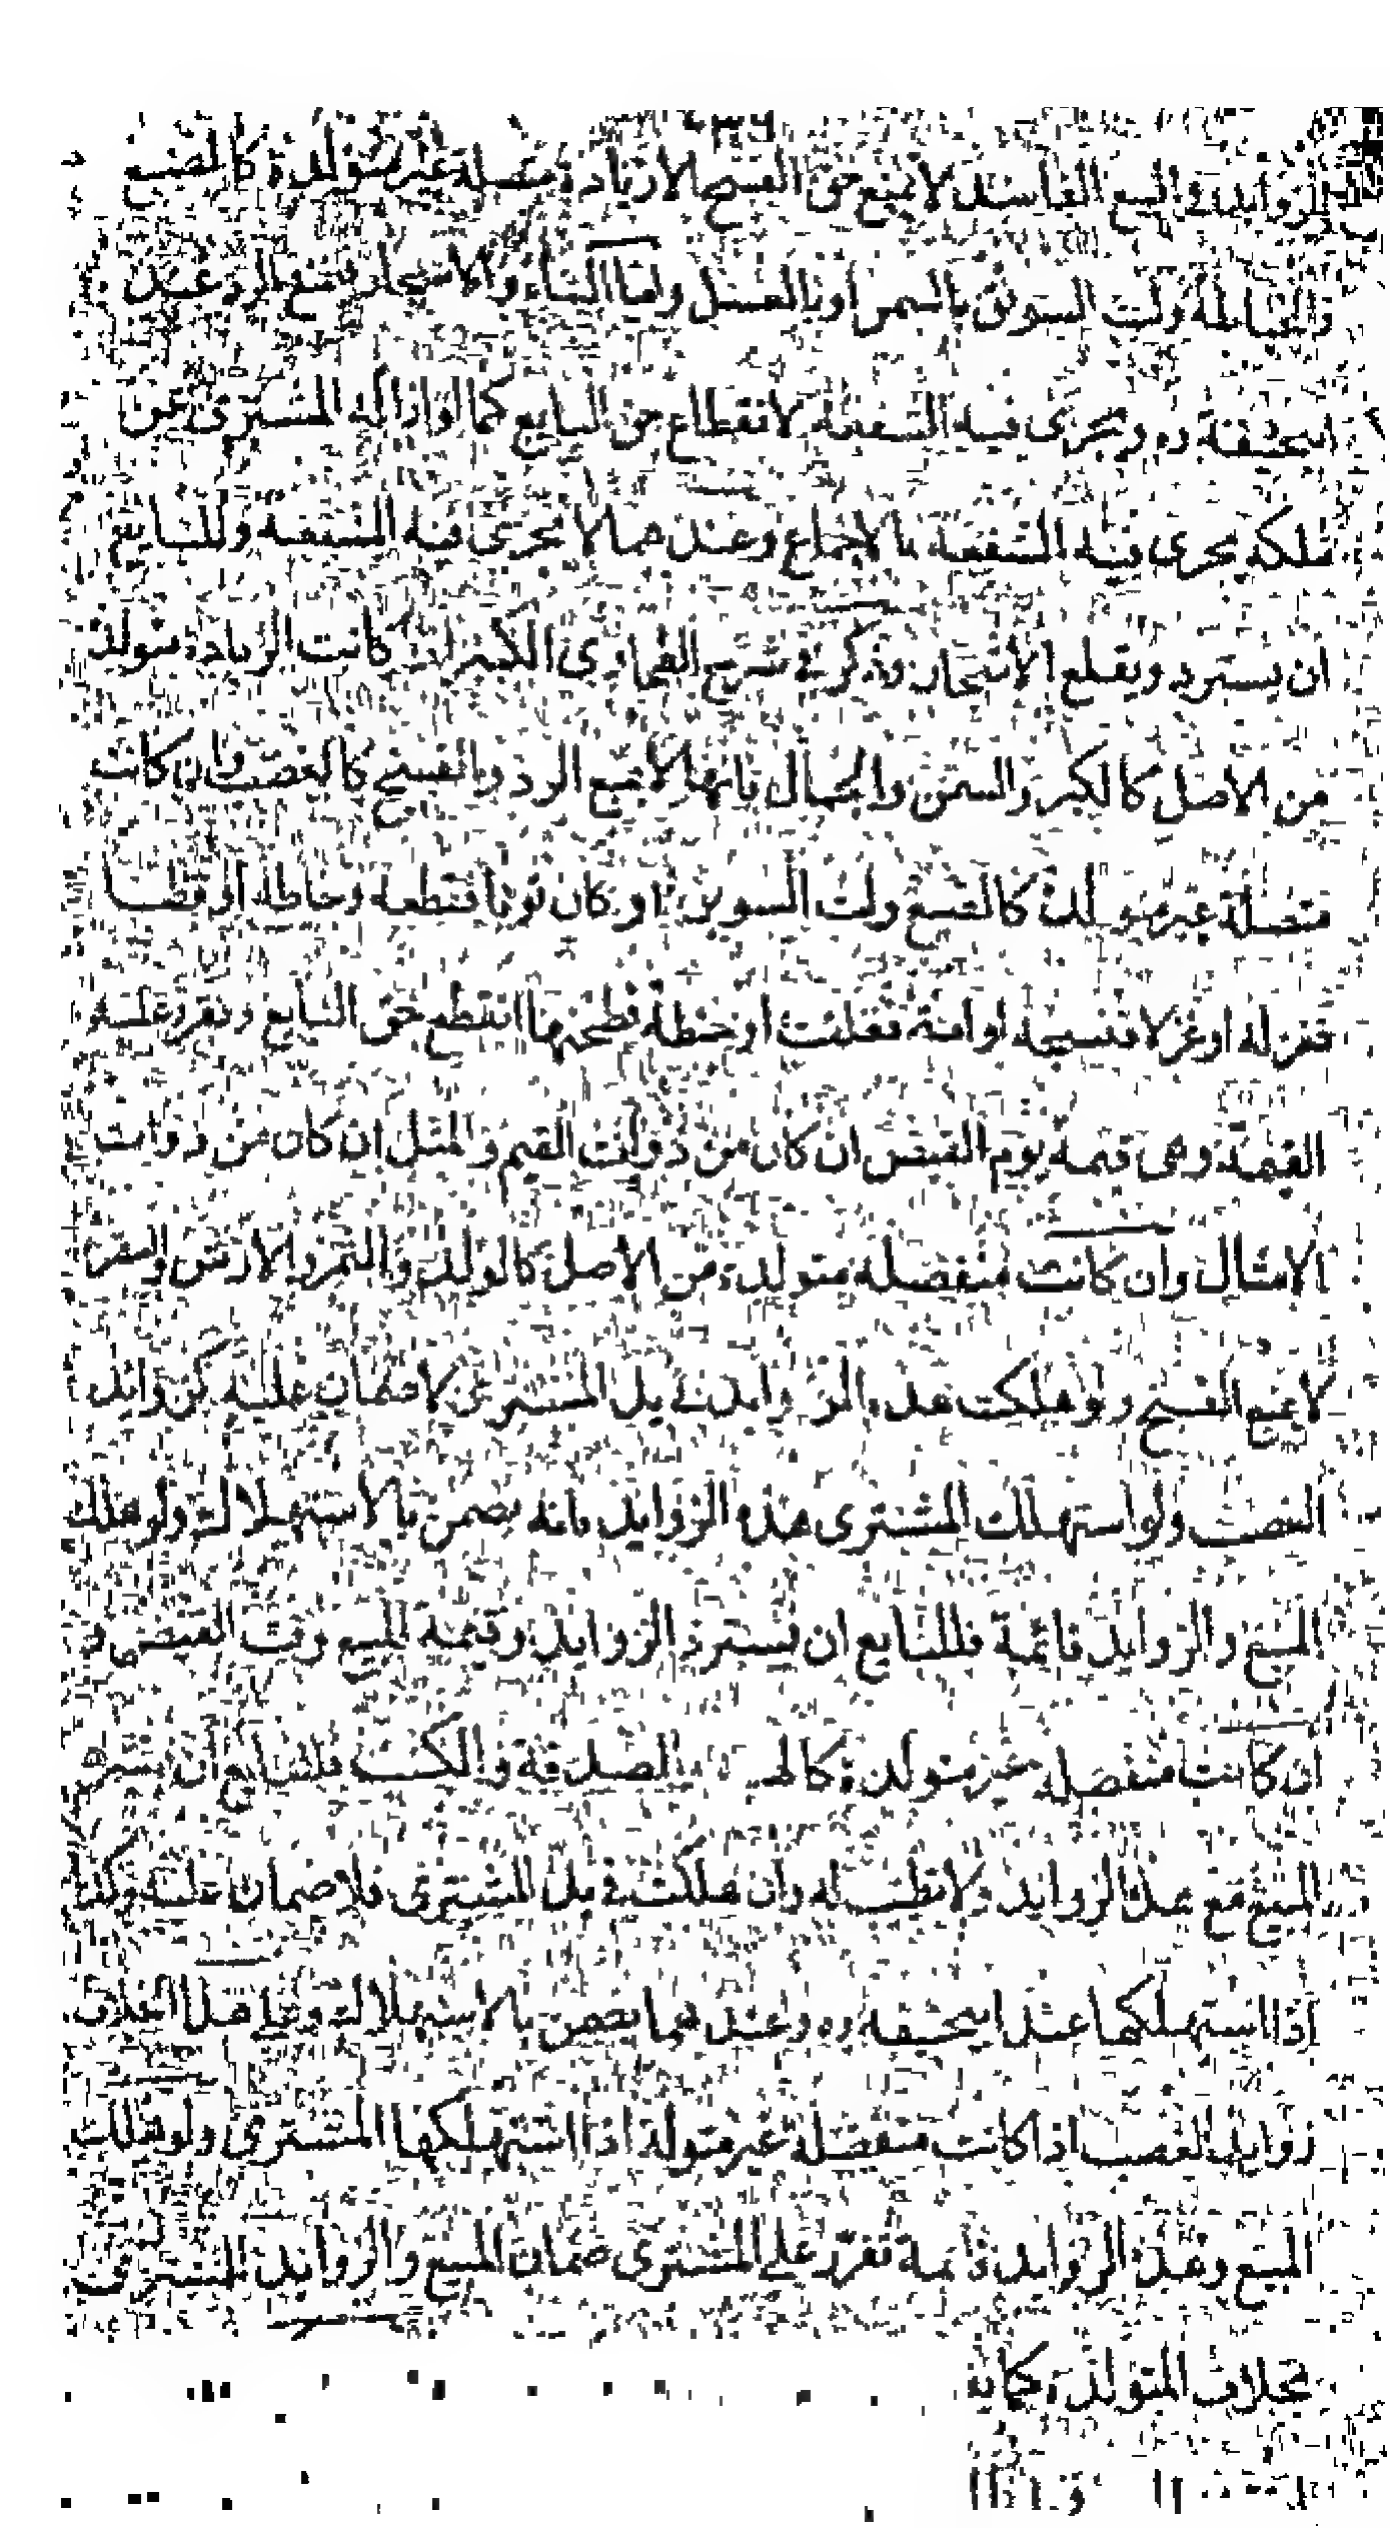 الزوايد في البيع الفاسد لا يمنع حق الفسخ الا زيادة متصلة غير متولدة كالصبغ
والخياطة ولت السويق بالسمن او بالعسل واما البناء والاشجار فيمنع الرد عند
ابيحنيفة ره ويجرى فيه الشفعة لانقطاع حق البايع كما لو ازاله المشترى عن
ملكه يجرى فيه الشفعة بالاجماع وعندهما لا يجرى فيه الشفعة وللبايع
ان يسترد ويقلع الاشجار وذكر في شرح الطحاوى الكبير ان كانت الزيادة متولدة
من الاصل كالكبر والسمن والجمال فانها لا يمنع الرد والفسخ كالغصب وان كانت
متصلة غير متولدة كالصبغ ولت السويق او كان ثوبا فقطعه وخاطه او قطنا
فغزله او غزلا فنسجه او امة فعلقت او حنطة فطحنها انقطع حق البايع وتقرر عليه
القيمة وهى قيمة يوم القبض ان كان من ذوات القيم والمثل ان كان من ذوات
الامثال وان كانت منفصلة متولدة من الاصل كالولد والثمر والارش والعقر
لا يمنع الفسخ ولو هلكت هذه الزوايد في يد المشترى لا ضمان عليه كزوايد
الغصب ولو استهلك المشترى هذه الزوايد فانه يضمن بالاستهلاك ولو هلك
المبيع والزوايد قائمة فللبايع ان يسترد الزوايد وقيمة المبيع وقت القبض و
ان كانت منفصلة غير متولدة كالهبة الصدقة والكسب فللبايع ان يسترد
المبيع مع هذه الزوايد ولا تطيب له وان هلكت في يد المشترى فلا ضمان عليه وكذا
اذا استهلكها عند ابيحنيفة ره وعندهما يضمن بالاستهلاك وعلى هذا الخلاف
زوايد الغصب اذا كانت منفصلة غير متولدة اذا استهلكها المشترى ولو هلك
المبيع وهذه الزوايد قائمة تقرر على المشترى ضمان المبيع والزوايد للمشترى
بخلاف المتولدة كما